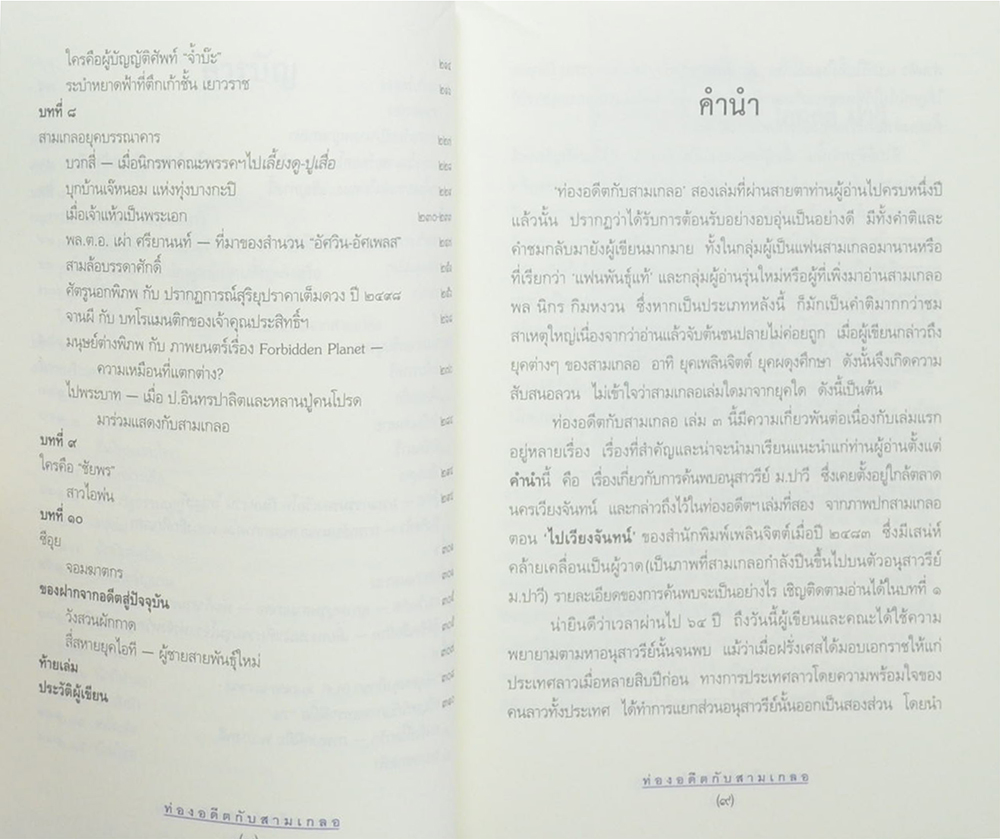 ใครคือผู้บัญญัติศัพท์ “จ้ำบ๊ะ”
ระบำหยาดฟ้าที่ตึกเก้าชั้น เยาวราช
บทที่ ๘
สามเกลอยุคบรรณาคาร
บวกสี่ — เมื่อนิกรพาคณะพรรคฯไปเลี้ยงดู-ปูเสื่อ
บุกบ้านเจ๊หนอม แห่งทุ่งบางกะปิ
เมื่อเจ้าแห้วเป็นพระเอก
พล.ต.อ. เผ่า ศรียานนท์ — ที่มาของสำนวน “อัศวิน-อัศเพลส”
สามล้อบรรดาศักดิ์
ศัตรูนอกพิภพ กับ ปรากฏการณ์สุริยุปราคาเต็มดวง ปี ๒๔๙๘
จานผี กับ บทโรแมนติกของเจ้าคุณประสิทธิ์ฯ
มนุษย์ต่างพิภพ กับ ภาพยนตร์เรื่อง Forbidden Planet —
ความเหมือนที่แตกต่าง?
ไปพระบาท — เมื่อ ป.อินทรปาลิตและหลานปู่คนโปรด
มาร่วมแสดงกับสามเกลอ
บทที่ ๙
ใครคือ “ชัยพร”
สาวไอพ่น
บทที่ ๑๐
ซีอุย
จอมฆาตกร
ของฝากจากอดีตสู่ปัจจุบัน
วังสวนผักกาด
สี่สหายยุคไอที — ผู้ชายสายพันธุ์ใหม่
ท้ายเล่ม
ประวัติผู้เขียน
ท่องอดีตกับสามเกลอ
คำนำ
‘ท่องอดีตกับสามเกลอ’ สองเล่มที่ผ่านสายตาท่านผู้อ่านไปครบหนึ่งปี
แล้วนั้น ปรากฏว่าได้รับการต้อนรับอย่างอบอุ่นเป็นอย่างดี มีทั้งคำติและ
คำชมกลับมายังผู้เขียนมากมาย ทั้งในกลุ่มผู้เป็นแฟนสามเกลอมานานหรือ
ที่เรียกว่า ‘แฟนพันธุ์แท้’ และกลุ่มผู้อ่านรุ่นใหม่หรือผู้ที่เพิ่งมาอ่านสามเกลอ
พล นิกร กิมหงวน ซึ่งหากเป็นประเภทหลังนี้ ก็มักเป็นคำติมากกว่าชม
สาเหตุใหญ่เนื่องจากว่าอ่านแล้วจับต้นชนปลายไม่ค่อยถูก เมื่อผู้เขียนกล่าวถึง
ยุคต่างๆ ของสามเกลอ อาทิ ยุคเพลินจิตต์ ยุคผดุงศึกษา ดังนั้นจึงเกิดความ
สับสนอลวน ไม่เข้าใจว่าสามเกลอเล่มใดมาจากยุคใด ดังนี้เป็นต้น
ท่องอดีตกับสามเกลอ เล่ม ๓ นี้มีความเกี่ยวพันต่อเนื่องกับเล่มแรก
อยู่หลายเรื่อง เรื่องที่สำคัญและน่าจะนำมาเรียนแนะนำแก่ท่านผู้อ่านตั้งแต่
คำนำนี้ คือ เรื่องเกี่ยวกับการค้นพบอนุสาวรีย์ ม.ปาวี ซึ่งเคยตั้งอยู่ใกล้ตลาด
นครเวียงจันทน์ และกล่าวถึงไว้ในท่องอดีตฯเล่มที่สอง จากภาพปกสามเกลอ
ตอน ‘ไปเวียงจันทน์’ ของสำนักพิมพ์เพลินจิตต์เมื่อปี ๒๔๘๓ ซึ่งมีเสน่ห์
คล้ายเคลื่อนเป็นผู้วาด(เป็นภาพที่สามเกลอกำลังปีนขึ้นไปบนตัวอนุสาวรีย์
ม.ปาวี) รายละเอียดของการค้นพบจะเป็นอย่างไร เชิญติดตามอ่านได้ในบทที่ ๑
น่ายินดีว่าเวลาผ่านไป ๖๔ ปี ถึงวันนี้ผู้เขียนและคณะได้ใช้ความ
พยายามตามหาอนุสาวรีย์นั้นจนพบ แม้ว่าเมื่อฝรั่งเศสได้มอบเอกราชให้แก่
ประเทศลาวเมื่อหลายสิบปีก่อน ทางการประเทศลาวโดยความพร้อมใจของ
คนลาวทั้งประเทศ ได้ทำการแยกส่วนอนุสาวรีย์นั้นออกเป็นสองส่วน โดยนำ
ท่องอดีตกับสามเกลอ
(๙)